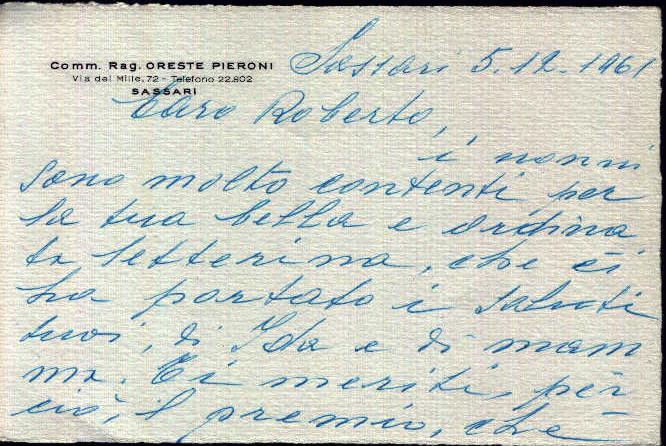 Comm. Rag. ORESTE PIERONI
Via dei Mille, 72 - Telefono 22.802
SASSARI
Sassari 5.12.1961
Caro Roberto,
i nonni
sono molto contenti per
la tua bella e ordina
ta letterina, che ci
ha portato i saluti
tuoi, di Ida e di mam
ma. Ti meriti, per
ciò, il premio, che